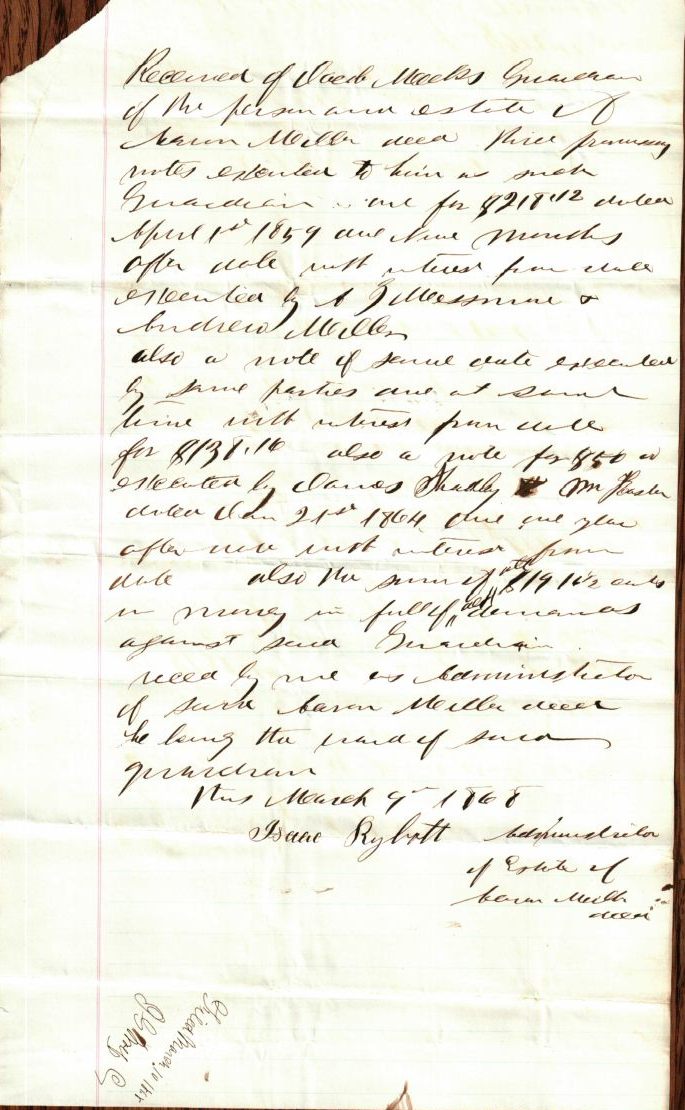 Received of Jacob Mocks Guardian
of the person and estate of
Aaron Miller decd three promissory
notes executed to him as such
Guardian one for $218.12 dated
April 1st 1859 due Nine months
after date with interest from date
executed by A J Messmore &
Andrew Miller
also a note of same date executed
by same parties due at same
time with interest from date
for $138.16 also a note for $50
executed by Wm
dated Jan 21st 1864 due one year
after date with interest from
date also the sum of
in money in full of all demands
against said Guardian
recd by me as Administrator
of said Aaron Miller decd
he being the ward of said
guardian
this March 9th 1868
Isaac Administrator
of Estate of
Aaron Miller
decd
Filed March 10 1868